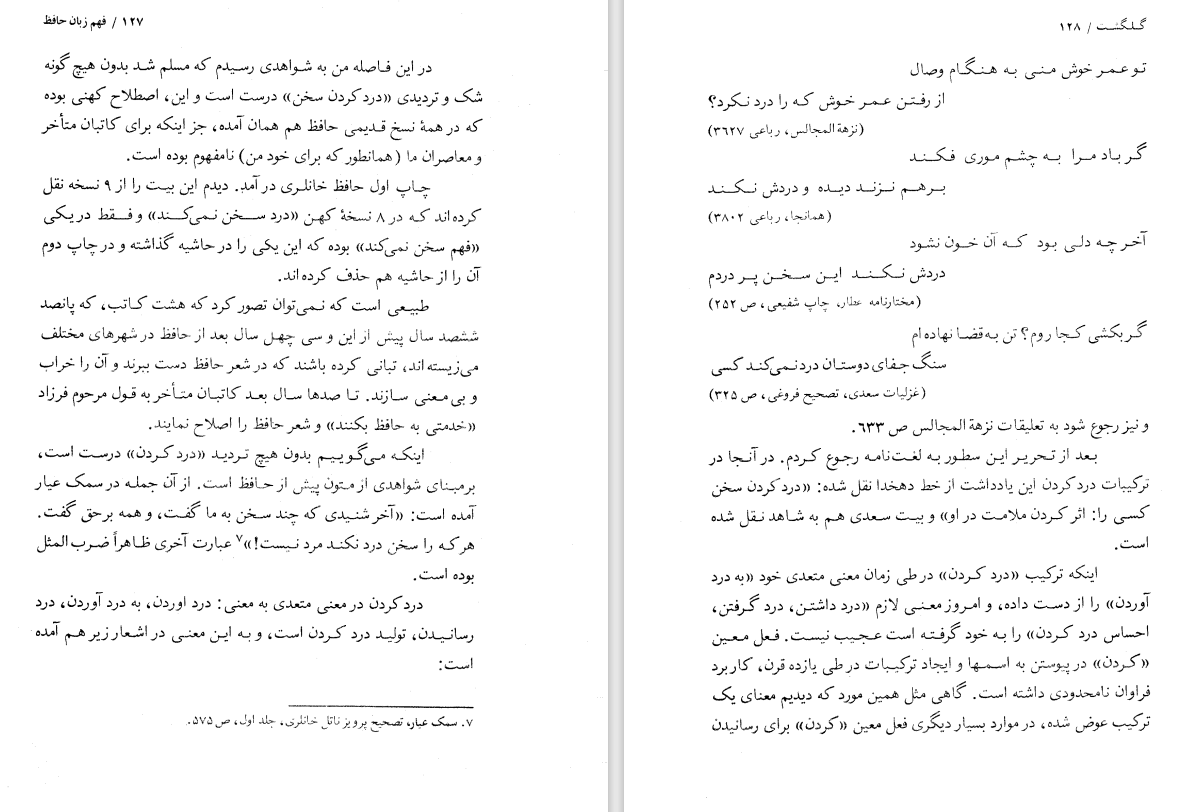 ۱۲۷ / فهم زبان حافظ
در این فاصله من به شواهدی رسیدم که مسلم شد بدون هیچ گونه
شک و تردیدی «درد کردن سخن» درست است و این، اصطلاح کهنی بوده
که در همهٔ نسخ قدیمی حافظ هم همان آمده، جز اینکه برای کاتبان متأخر
و معاصران ما (همانطور که برای خود من) نامفهوم بوده است.
چاپ اول حافظ خانلری در آمد. دیدم این بیت را از ۹ نسخه نقل
کرده‌اند که در ۸ نسخهٔ کهن «درد سخن نمی‌کند» و فقط در یکی
«فهم سخن نمی‌کند» بوده که این یکی را در حاشیه گذاشته و در چاپ دوم
آن را از حاشیه هم حذف کرده‌اند.
طبیعی است که نمی‌توان تصور کرد که هشت کاتب، که پانصد
ششصد سال پیش از این و سی چهل سال بعد از حافظ در شهرهای مختلف
می‌زیسته‌اند، تبانی کرده باشند که در شعر حافظ دست ببرند و آن را خراب
و بی‌معنی سازند. تا صدها سال بعد کاتبان متأخر به قول مرحوم فرزاد
«خدمتی به حافظ بکنند» و شعر حافظ را اصلاح نمایند.
اینکه می‌گوییم بدون هیچ تردید «درد کردن» درست است،
برمبنای شواهدی از متون پیش از حافظ است. از آن جمله در سمک عیار
آمده است: «آخر شنیدی که چند سخن به ما گفت، و همه بر حق گفت.
هر که را سخن درد نکند مرد نیست!»۷ عبارت آخری ظاهراً ضرب‌المثل
بوده است.
درد کردن در معنی متعدی به معنی: درد اوردن، به درد آوردن، درد
رسانیدن، تولید درد کردن است، و به این معنی در اشعار زیر هم آمده
است:
۷. سمک عیار، تصحیح پرویز ناتل خانلری، جلد اول، ص ۵۷۵.
گلگشت / ۱۲۸
تو عمر خوش منی به هنگام وصال
از رفتن عمر خوش که را درد نکرد؟
(نزهة المجالس، رباعی ۳۶۲۷)
گر باد مرا به چشم موری فکند
برهم نزند دیده و دردش نکند
(همانجا، رباعی ۳۸۰۲)
آخر چه دلی بود که آن خون نشود
دردش نکند این سخن پر دردم
(مختارنامه عطار، چاپ شفیعی، ص ۲۵۲)
گر بکشی کجا روم؟ تن به قضا نهاده‌ام
سنگ جفای دوستان درد نمی‌کند کسی
(غزلیات سعدی، تصحیح فروغی، ص ۳۲۵)
و نیز رجوع شود به تعلیقات نزهة المجالس ص ۶۳۳.
بعد از تحریر این سطور به لغت‌نامه رجوع کردم. در آنجا در
ترکیبات درد کردن این یادداشت از خط دهخدا نقل شده: «درد کردن سخن
کسی را: اثر کردن ملامت در او» و بیت سعدی هم به شاهد نقل شده
است.
اینکه ترکیب «درد کردن» در طی زمان معنی متعدی خود «به درد
آوردن» را از دست داده، و امروز معنی لازم «درد داشتن، درد گرفتن،
احساس درد کردن» را به خود گرفته است عجیب نیست. فعل معین
«کردن» در پیوستن به اسمها و ایجاد ترکیبات در طی یازده قرن، کاربرد
فراوان نامحدودی داشته است. گاهی مثل همین مورد که دیدیم معنای یک
ترکیب عوض شده، در موارد بسیار دیگری فعل معین «کردن» برای رسانیدن